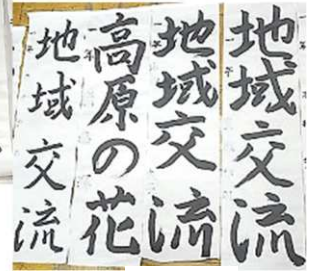 地域交流
地域交流
高原の花
地域交流